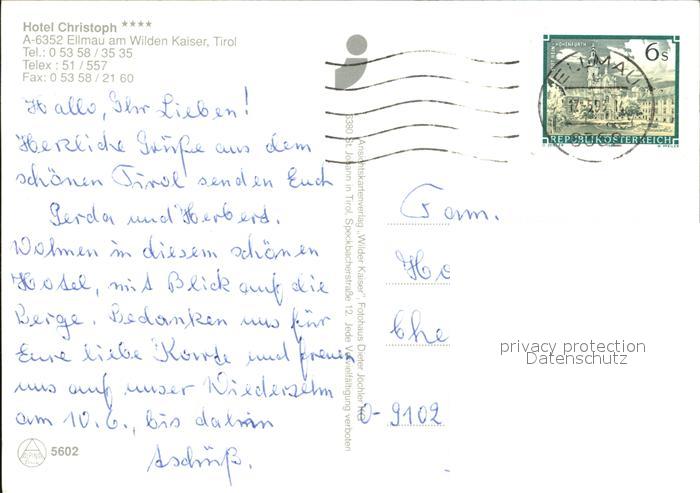 Hotel Christoph ****
A-6352 Ellmau am Wilden Kaiser, Tirol
Tel.: 0 53 58 / 35 35
Telex : 51 / 557
Fax: 0 53 58 / 21 60
Hallo, Ihr Lieben!
Herzliche Grüße aus dem
schönen Tirol senden Euch
Gerda und Herbert.
Wohnen in diesem schönen
Hotel, mit Blick auf die
Berge. Bedanken uns für
Eure liebe Karte und freuen
uns auf unser Wiedersehn
am 10.6., bis dahin
tschüß.
5602
Ansichtskartenverlag „Wilder Kaiser", Fotohaus Dieter Jöchler
6380 St. Johann in Tirol, Speckbacherstraße 12. Jede Vervielfältigung verboten
6 S
REPUBLIK ÖSTERREICH
ELLMAU
Fam.
Ho
Che
O-9102
privacy protection
Datenschutz